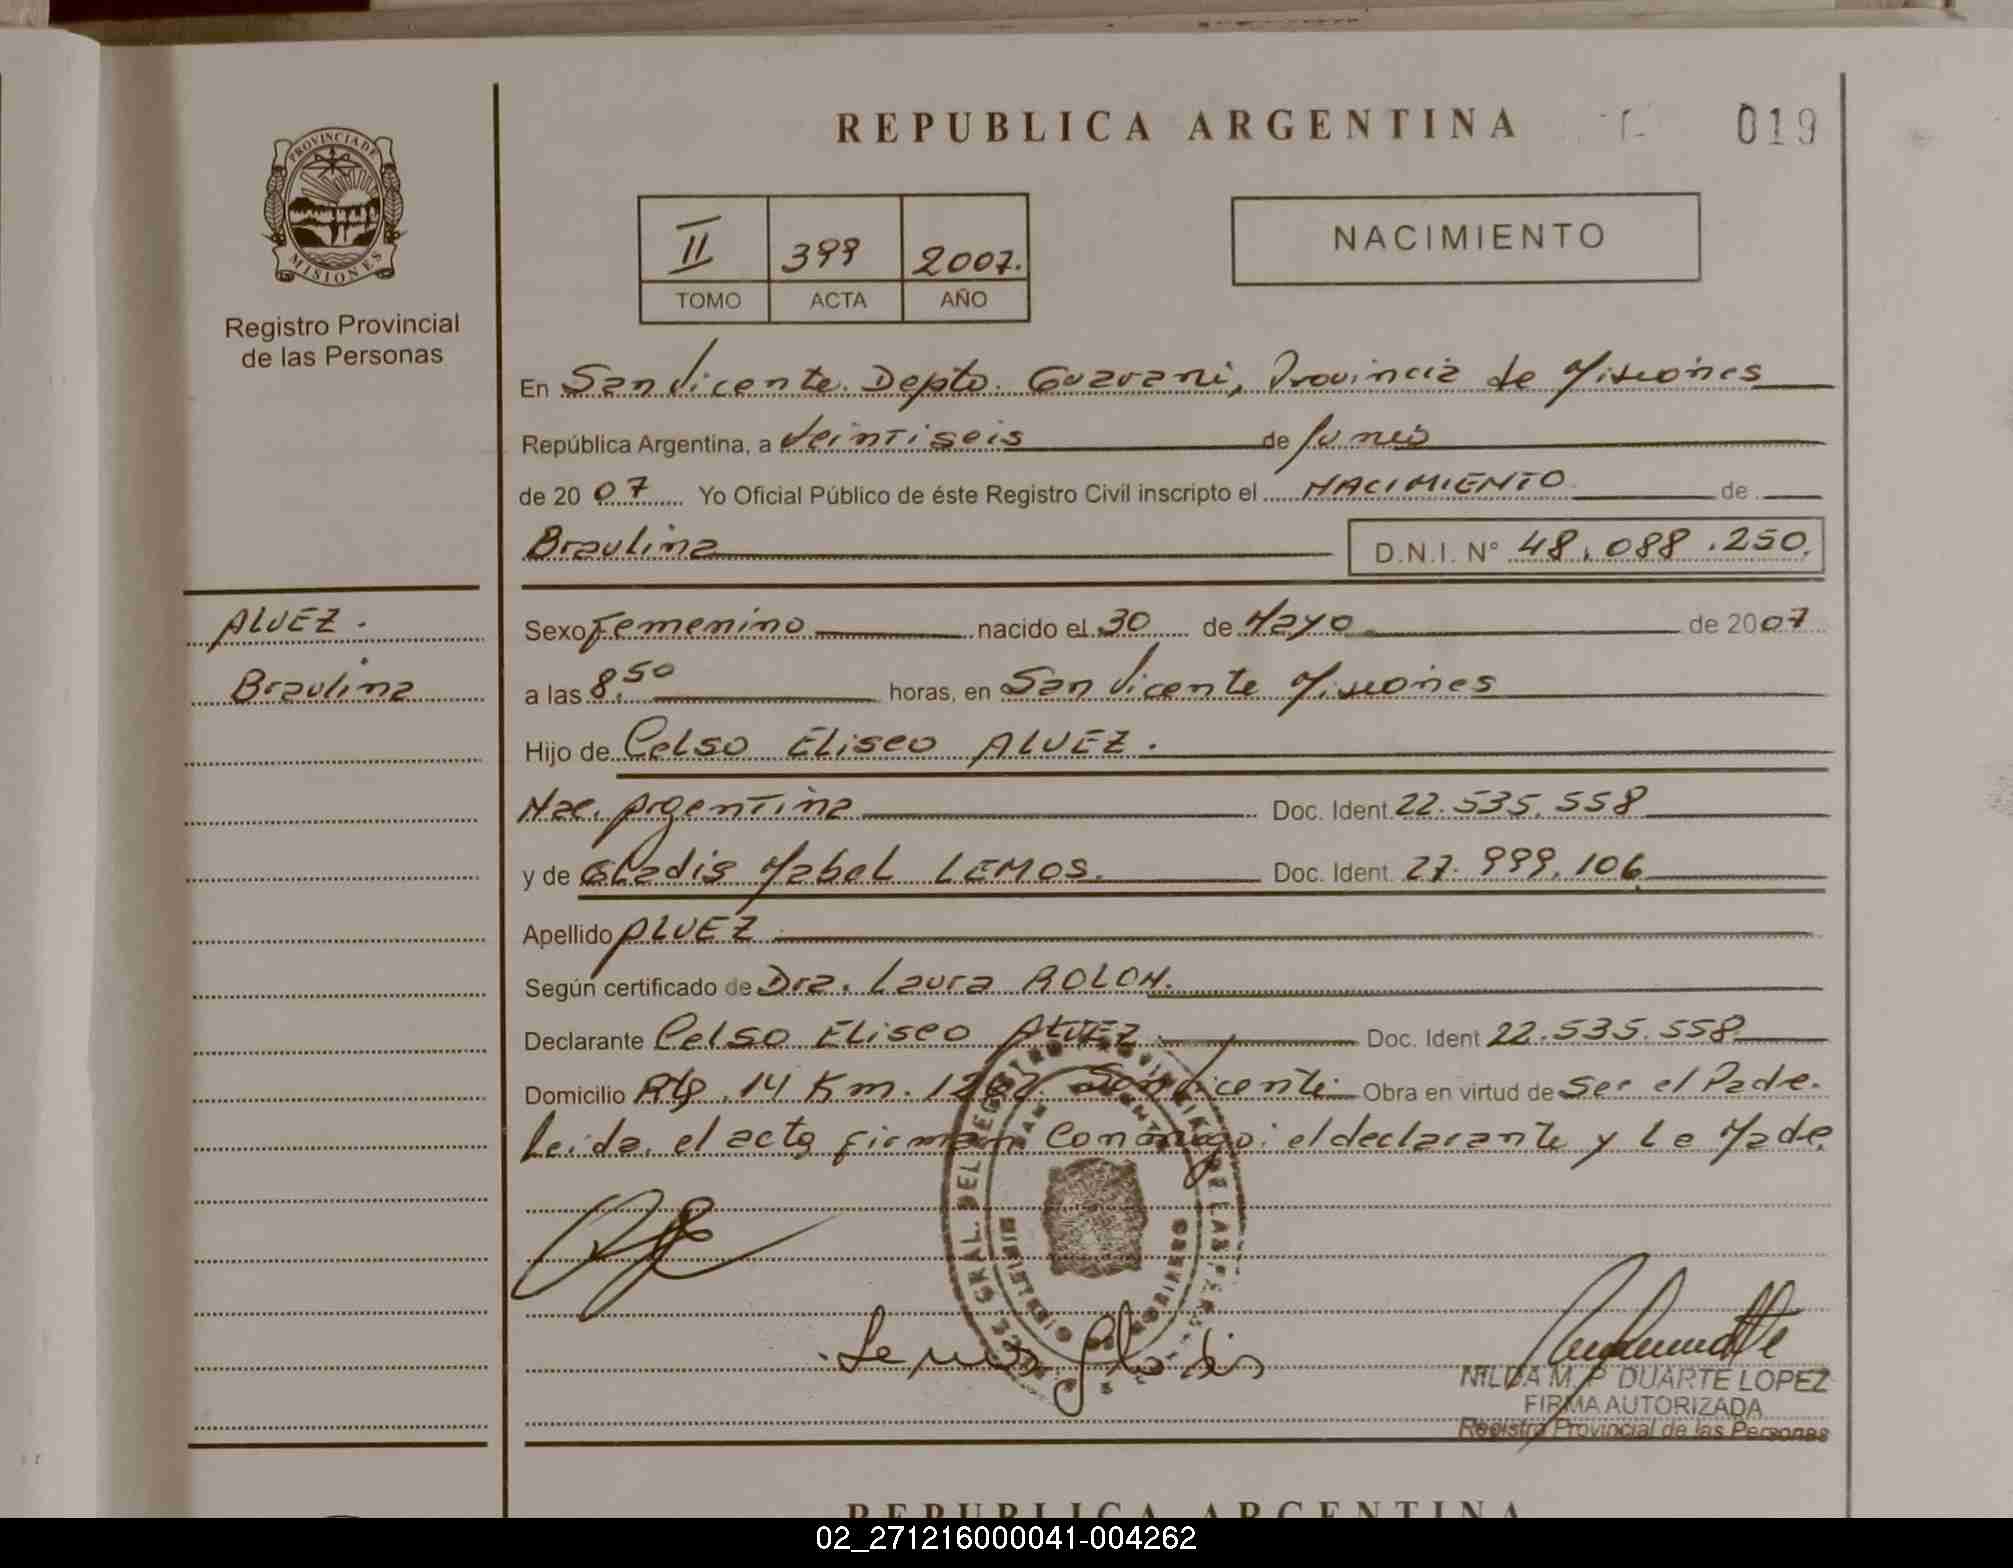 REPUBLICA ARGENTINA
019
PROVINCIA DE
MISIONES
Registro Provincial
de las Personas
II 399 2007.
TOMO ACTA AÑO
NACIMIENTO
En San Vicente. Depto. Guarani, Provincia de Misiones
República Argentina, a Veintiseis de Junio
de 20 07 Yo Oficial Público de éste Registro Civil inscripto el NACIMIENTO de
Braulina D.N.I. N° 48.088.250.
ALVEZ.
Braulina
Sexo Femenino nacido el 30 de Mayo de 2007
a las 8.50 horas, en San Vicente Misiones
Hijo de Celso Eliseo ALVEZ.
Nac. Argentina Doc. Ident. 22.535.558
y de Gladis Mabel LEMOS. Doc. Ident. 27.999.106
Apellido ALVEZ
Según certificado de Dra. Laura ROLON.
Declarante Celso Eliseo ALVEZ. Doc. Ident 22.535.558
Domicilio San Vicente Obra en virtud de Ser el Padre.
Leida el acta firman Conmigo: el declarante y La Madre
Lemos Gladis
NILDA M. P. DUARTE LOPEZ
FIRMA AUTORIZADA
Registro Provincial de las Personas
REPUBLICA ARGENTINA
02_271216000041-004262